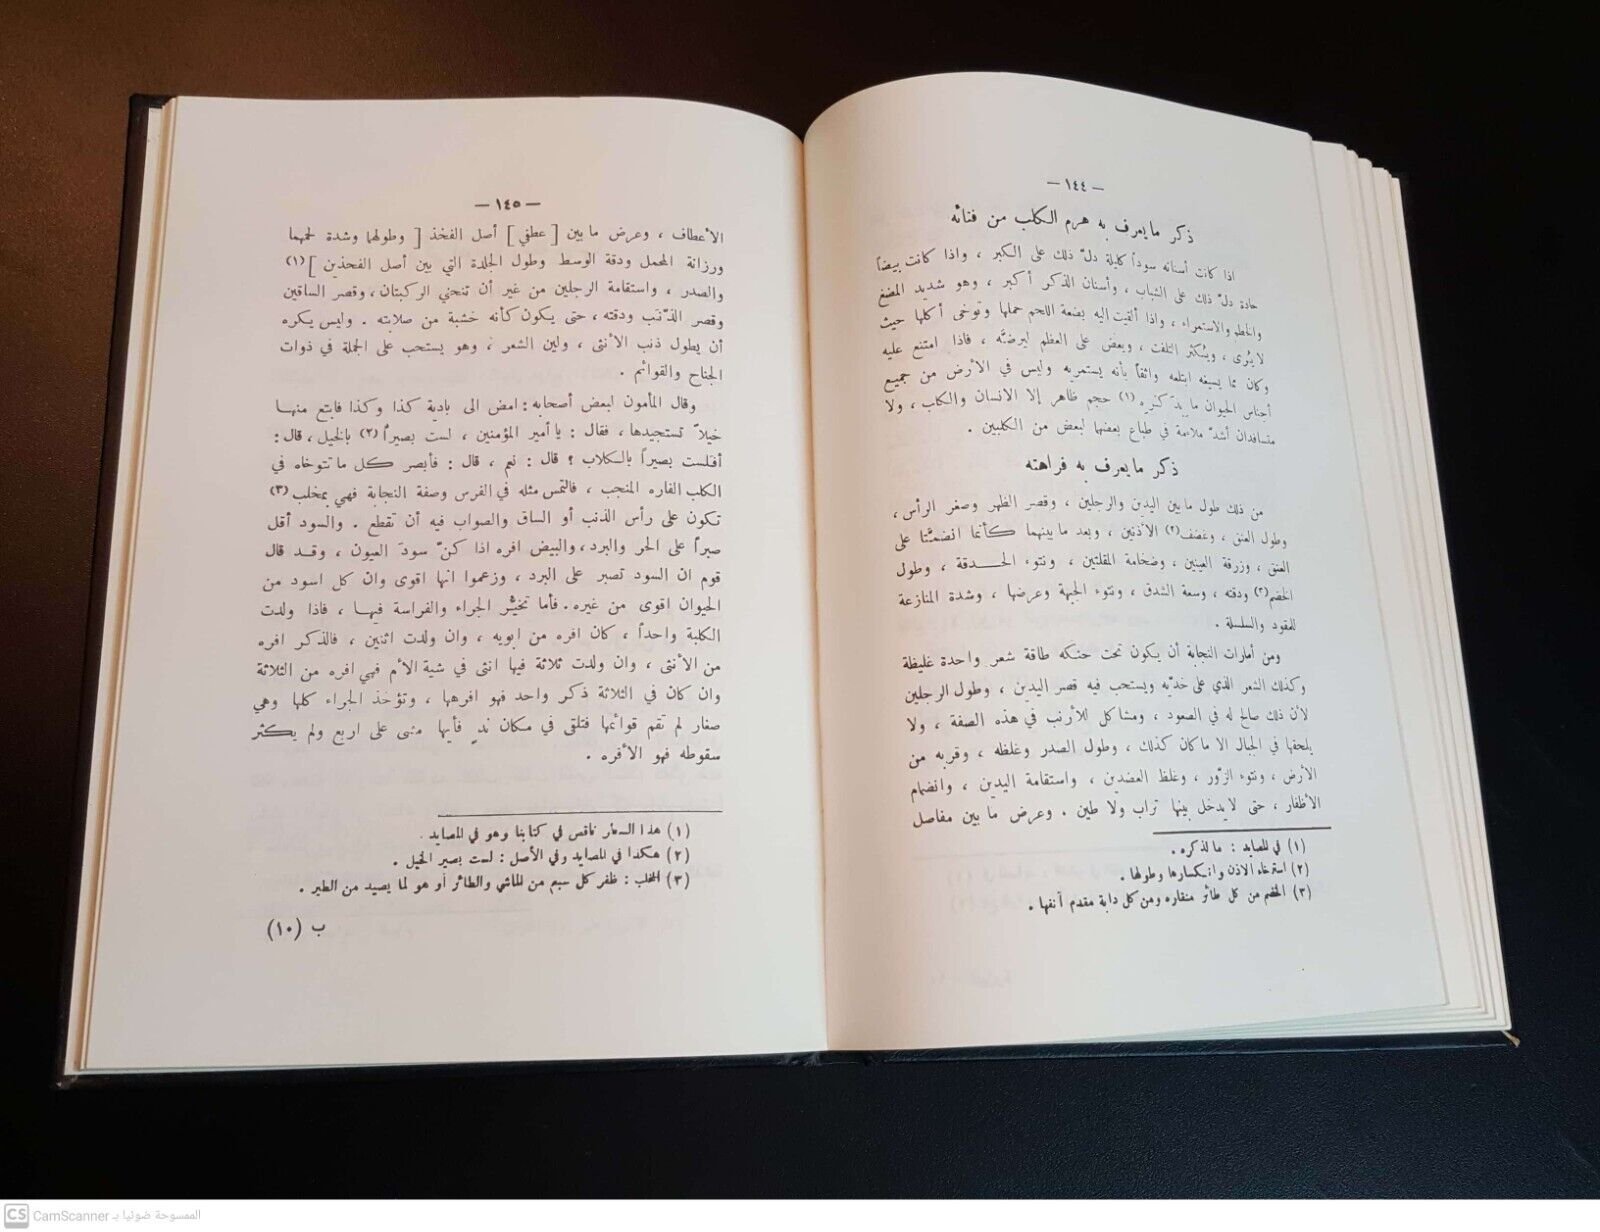 — ١٤٤ —
ذكر ما يعرف به هرم الكلب من فتائه
اذا كانت أسنانه سوداً كليلة دلّ ذلك على الكبر ، واذا كانت بيضاً
حادة دلّ ذلك على الشباب ، وأسنان الذكر أكبر ، وهو شديد المضغ
والخطم والاستمراء ، واذا ألقيت اليه بضعة اللحم حملها وتوخى أكلها حيث
لا يُرى ، ويُكثر التلفت ، ويعض على العظم ليرضَّه ، فاذا امتنع عليه
وكان مما يسيغه ابتلعه واثقاً بأنه يستمريه وليس في الأرض من جميع
أجناس الحيوان ما (١) حجم ظاهر إلا الانسان والكلب ، ولا
متسافدان أشدّ ملاءمة في طباع بعضها لبعض من الكلبين .
ذكر ما يعرف به فراهته
من ذلك طول ما بين اليدين والرجلين ، وقصر الظهر وصغر الرأس ،
وطول العنق ، وغضف (٢) الأذنين ، وبعد ما بينهما كأنما انضمَّتا على
العنق ، وزرقة العينين ، وضخامة المقلتين ، ونتوء الحدقة ، وطول
الخطم (٣) ودقته ، وسعة الشدق ، ونتوء الجبهة وعرضها ، وشدة المنازعة
للمقود والسلسلة .
ومن أمارات النجابة أن يكون تحت حنكه طاقة شعر واحدة غليظة
وكذلك الشعر الذي على خديه ويستحب فيه قصر اليدين ، وطول الرجلين
لأن ذلك صالح له في الصعود ، ومشاكل للأرنب في هذه الصفة ، ولا
يلحقها في الجبال الا ما كان كذلك ، وطول الصدر وغلظه ، وقربه من
الأرض ، ونتوء الزّور ، وغلظ العضدين ، واستقامة اليدين ، وانضمام
الأظفار ، حتى لا يدخل بينها تراب ولا طين . وعرض ما بين مفاصل
(١) في المصايد : ما لذكره .
(٢) استرخاء الاذن وانكسارها وطولها .
(٣) الخطم من كل طائر منقاره ومن كل دابة مقدم أنفها .
— ١٤٥ —
الأعطاف ، وعرض ما بين [ عطفي ] أصل الفخذ [ وطولهما وشدة لحمهما
ورزانة المحمل ودقة الوسط وطول الجلدة التي بين أصل الفخذين ] (١)
والصدر ، واستقامة الرجلين من غير أن تنحني الركبتان ، وقصر الساقين
وقصر الذّنب ودقته ، حتى يكون كأنه خشبة من صلابته . وليس يكره
أن يطول ذنب الأنثى ، ولين الشعر ، وهو يستحب على الجملة في ذوات
الجناح والقوائم .
وقال المأمون لبعض أصحابه : امض الى بادية كذا وكذا فابتع منها
خيلاً تستجيدها ، فقال : يا أمير المؤمنين ، لست بصيراً (٢) بالخيل ، قال :
أفلست بصيراً بالكلاب ؟ قال : نعم ، قال : فأبصر كل ما تتوخاه في
الكلب الفاره المنجب ، فالتمس مثله في الفرس وصفة النجابة فهي بمخلب (٣)
تكون على رأس الذنب أو الساق والصواب فيه أن تقطع . والسود أقل
صبراً على الحر والبرد ، والبيض افره اذا كنّ سودَ العيون ، وقد قال
قوم ان السود تصبر على البرد ، وزعموا انها اقوى وان كل اسود من
الحيوان اقوى من غيره . فأما تخيُّر الجراء والفراسة فيها ، فاذا ولدت
الكلبة واحداً ، كان افره من ابويه ، وان ولدت اثنين ، فالذكر افره
من الأنثى ، وان ولدت ثلاثة فيها انثى في شية الأم فهي افره من الثلاثة
وان كان في الثلاثة ذكر واحد فهو افرهها ، وتؤخذ الجراء كلها وهي
صغار لم تقم قوائمها فتلقى في مكان ندٍ فأيها مشى على اربع ولم يكثر
سقوطه فهو الأفره .
(١) هذا السطر ناقص في كتابنا وهو في المصايد .
(٢) هكذا في المصايد وفي الأصل : لست بصير الخيل .
(٣) المخلب : ظفر كل سبع من الماشي والطائر أو هو لما يصيد من الطير .
ب (١٠)
CS CamScanner الممسوحة ضوئيا بـ